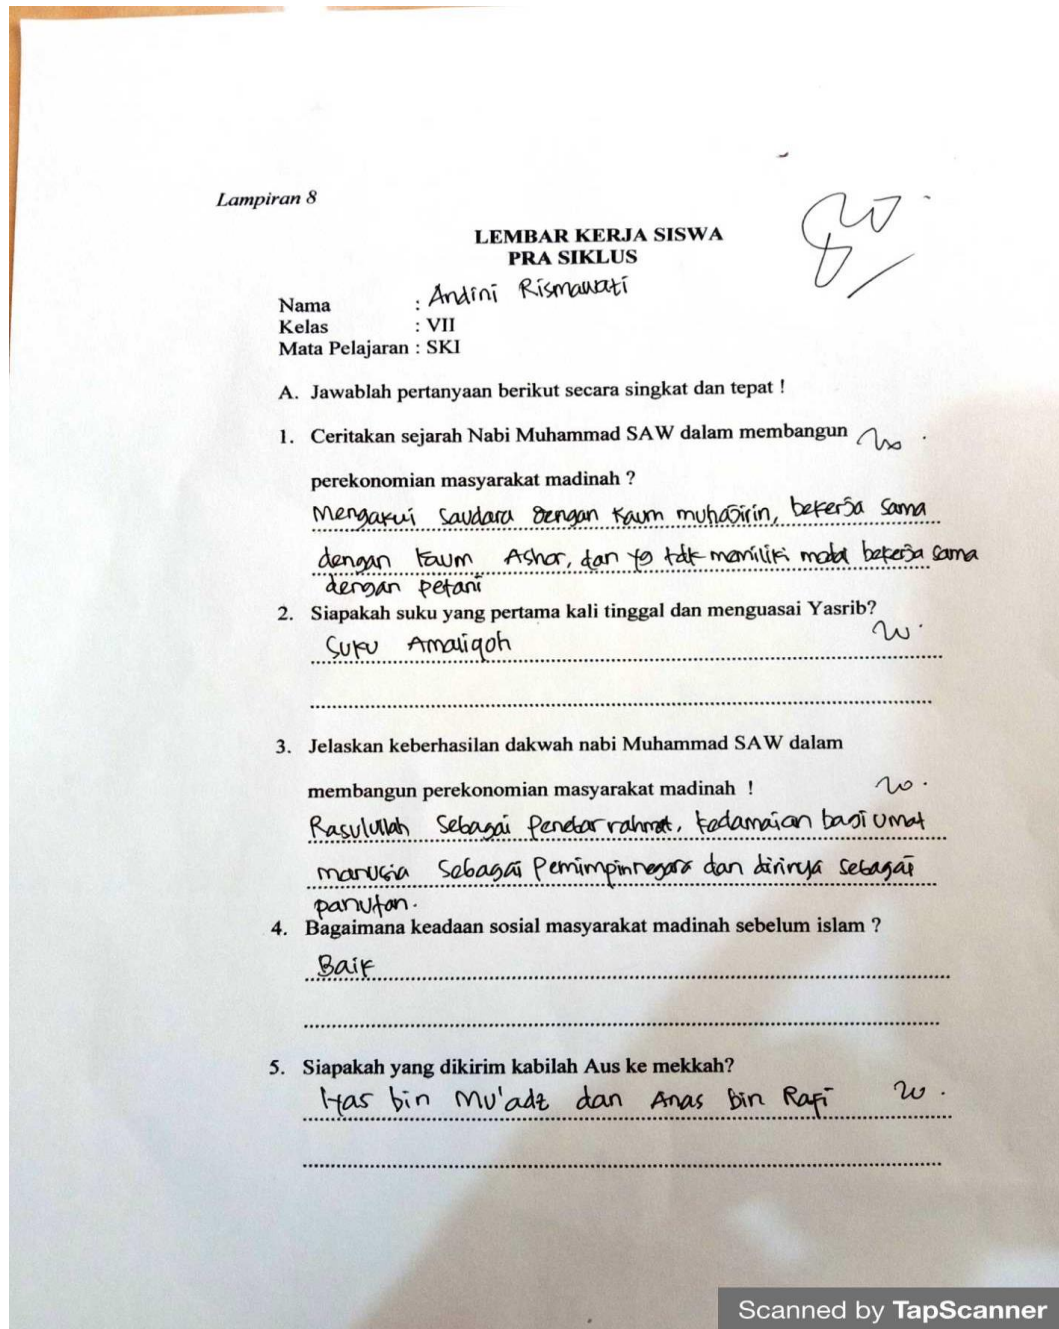 Lampiran 8
80
LEMBAR KERJA SISWA
PRA SIKLUS
Nama : Andini Rismawati
Kelas : VII
Mata Pelajaran : SKI
A. Jawablah pertanyaan berikut secara singkat dan tepat !
1. Ceritakan sejarah Nabi Muhammad SAW dalam membangun 20
perekonomian masyarakat madinah ?
Mengakui saudara dengan kaum muhajirin, bekerja sama
dengan kaum Ashor, dan yg tdk memiliki modal bekerja sama
dengan petani
2. Siapakah suku yang pertama kali tinggal dan menguasai Yasrib?
Suku Amaliqoh 20
3. Jelaskan keberhasilan dakwah nabi Muhammad SAW dalam
membangun perekonomian masyarakat madinah ! 20
Rasulullah sebagai penebar rahmat, kedamaian bagi umat
manusia sebagai pemimpin negara dan dirinya sebagai
panutan.
4. Bagaimana keadaan sosial masyarakat madinah sebelum islam ?
Baik
5. Siapakah yang dikirim kabilah Aus ke mekkah?
Iyas bin Mu'adz dan Anas bin Rafi 20
Scanned by TapScanner